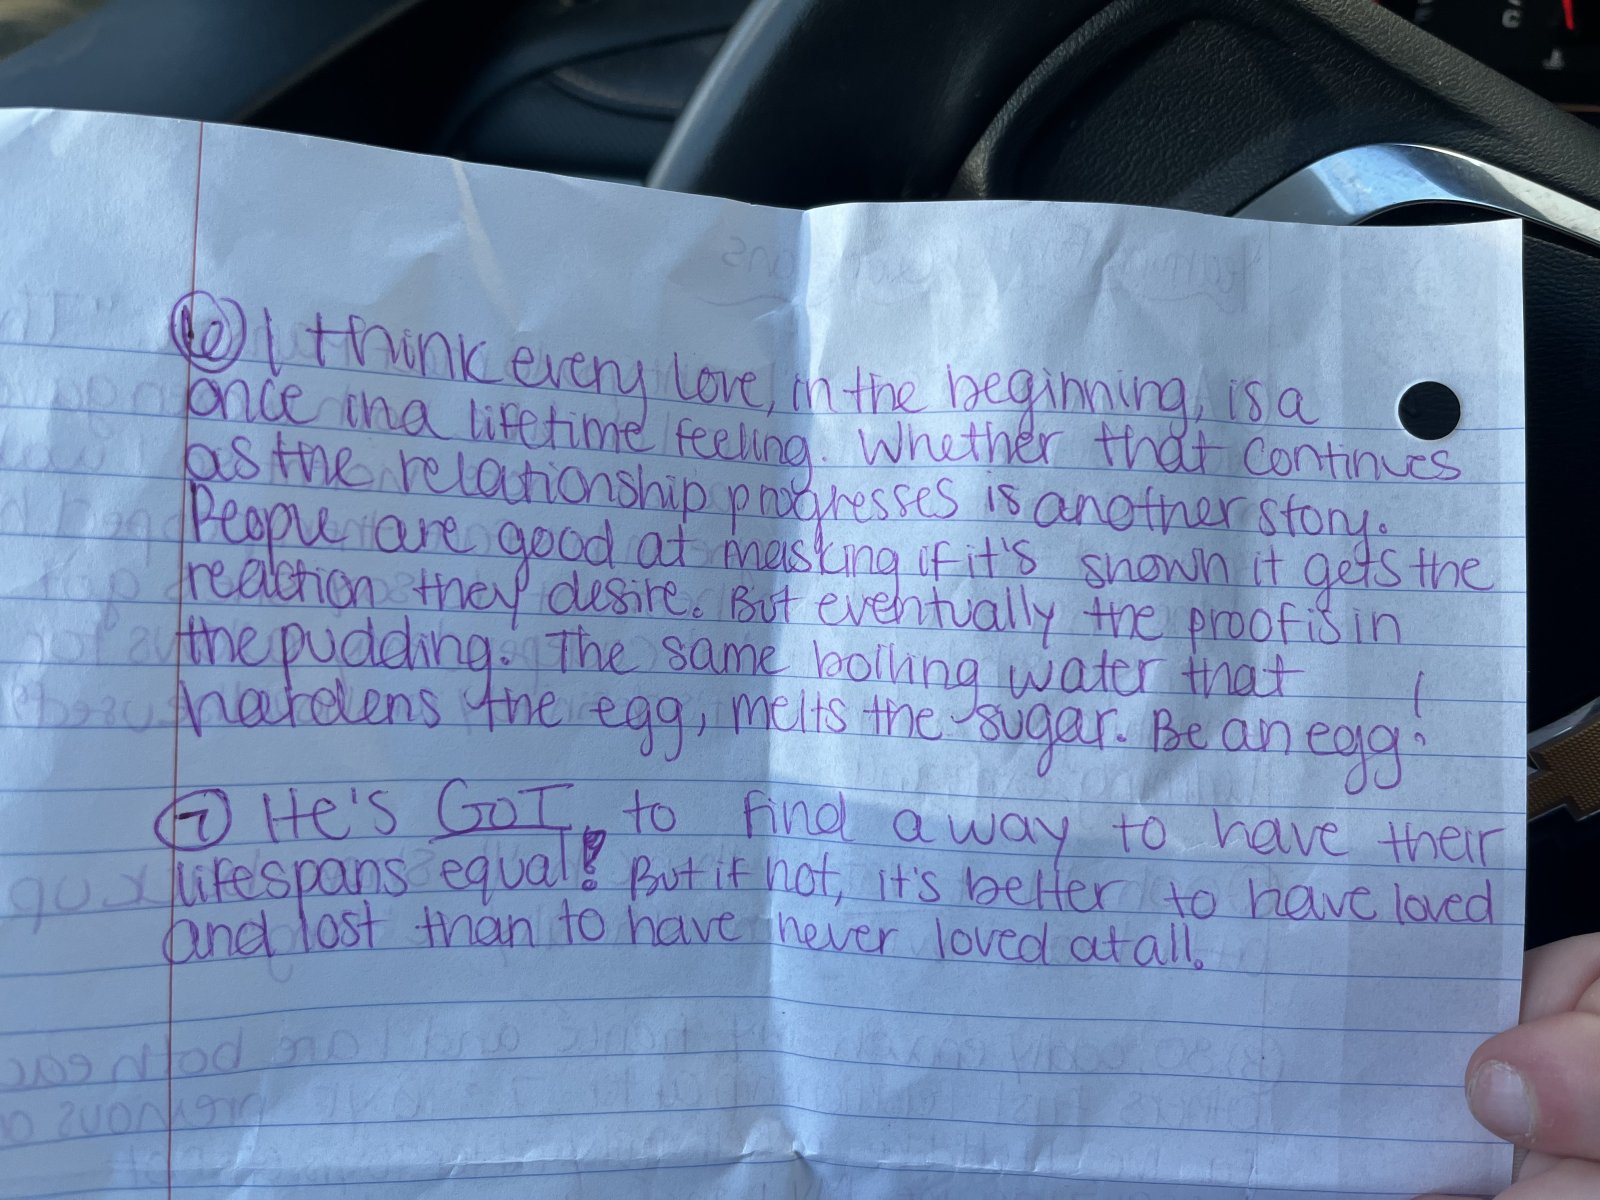 ⑥ I think every love, in the beginning, is a
once in a lifetime feeling. Whether that continues
as the relationship progresses is another story.
People are good at masking if it's shown it gets the
reaction they desire. But eventually the proof is in
the pudding. The same boiling water that
hardens the egg, melts the sugar. Be an egg!
⑦ He's GOT to find a way to have their
lifespans equal! But if not, it's better to have loved
and lost than to have never loved at all.